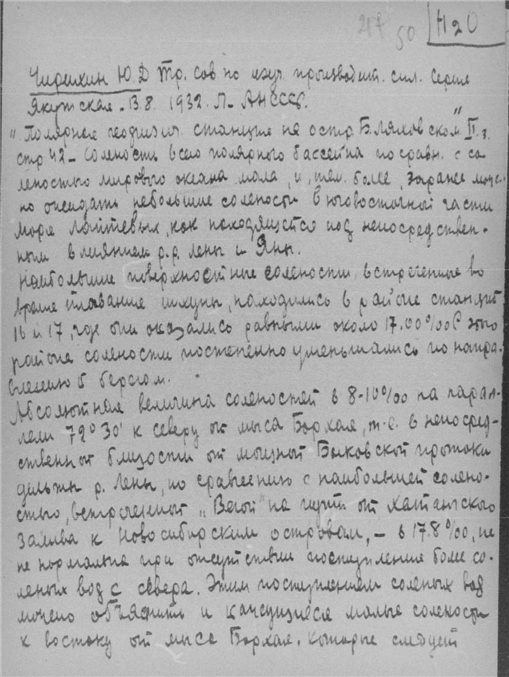 50 H2O
Чирихин Ю.Д Тр. сов по изуч. производит. сил. Серия
Якутская. В.8. 1932. Л-АНСССР.
"Полярная геофизич. станция на остр. Б.Ляховском" II ч.
стр 42 - Соленость всего полярного бассейна по сравн. с со-
леностью мирового океана мала, и, тем более, заранее мож-
но ожидать небольшие солености в юговосточной части
моря Лаптевых, как находящегося под непосредствен-
ным влиянием р.р. Лены и Яны.
Наибольшие поверхностные солености, встреченные во
время плавания шхуны, находились в районе станций
16 и 17, где они оказались равными около 17.00%0. С этого
района солености постепенно уменьшались по напра-
влению б берегом.
Абсолютная величина соленостей в 8-10%0 на парал-
лели 72° 30' к северу от мыса Борхая, т.е. в непосред-
ственной близости от мощной Быковской протоки
дельты р. Лены, по сравнению с наибольшей солено-
стью, встреченной "Вегой" на пути от Хатангского
залива к Новосибирским островам, – в 17.8%0, не
не нормальна при отсутствии поступления более со-
леных вод с севера. Этим поступлением соленых вод
можно объяснить и кажущиеся малые солености
к востоку от мыса Борхая, которые следует